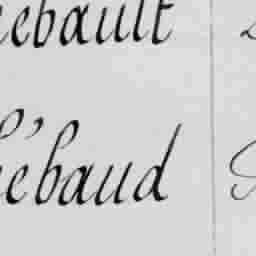 ebault
ébaud